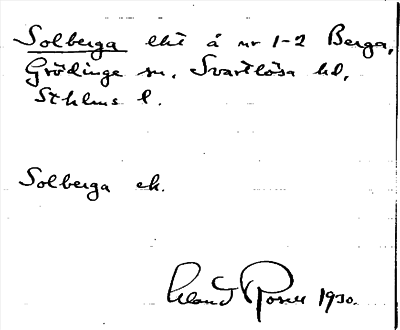 Solberga lht å nr 1-2 Berga,
Grödinge sn, Svartlösa hd,
Sthlms l.
Solberga ek.
1930.